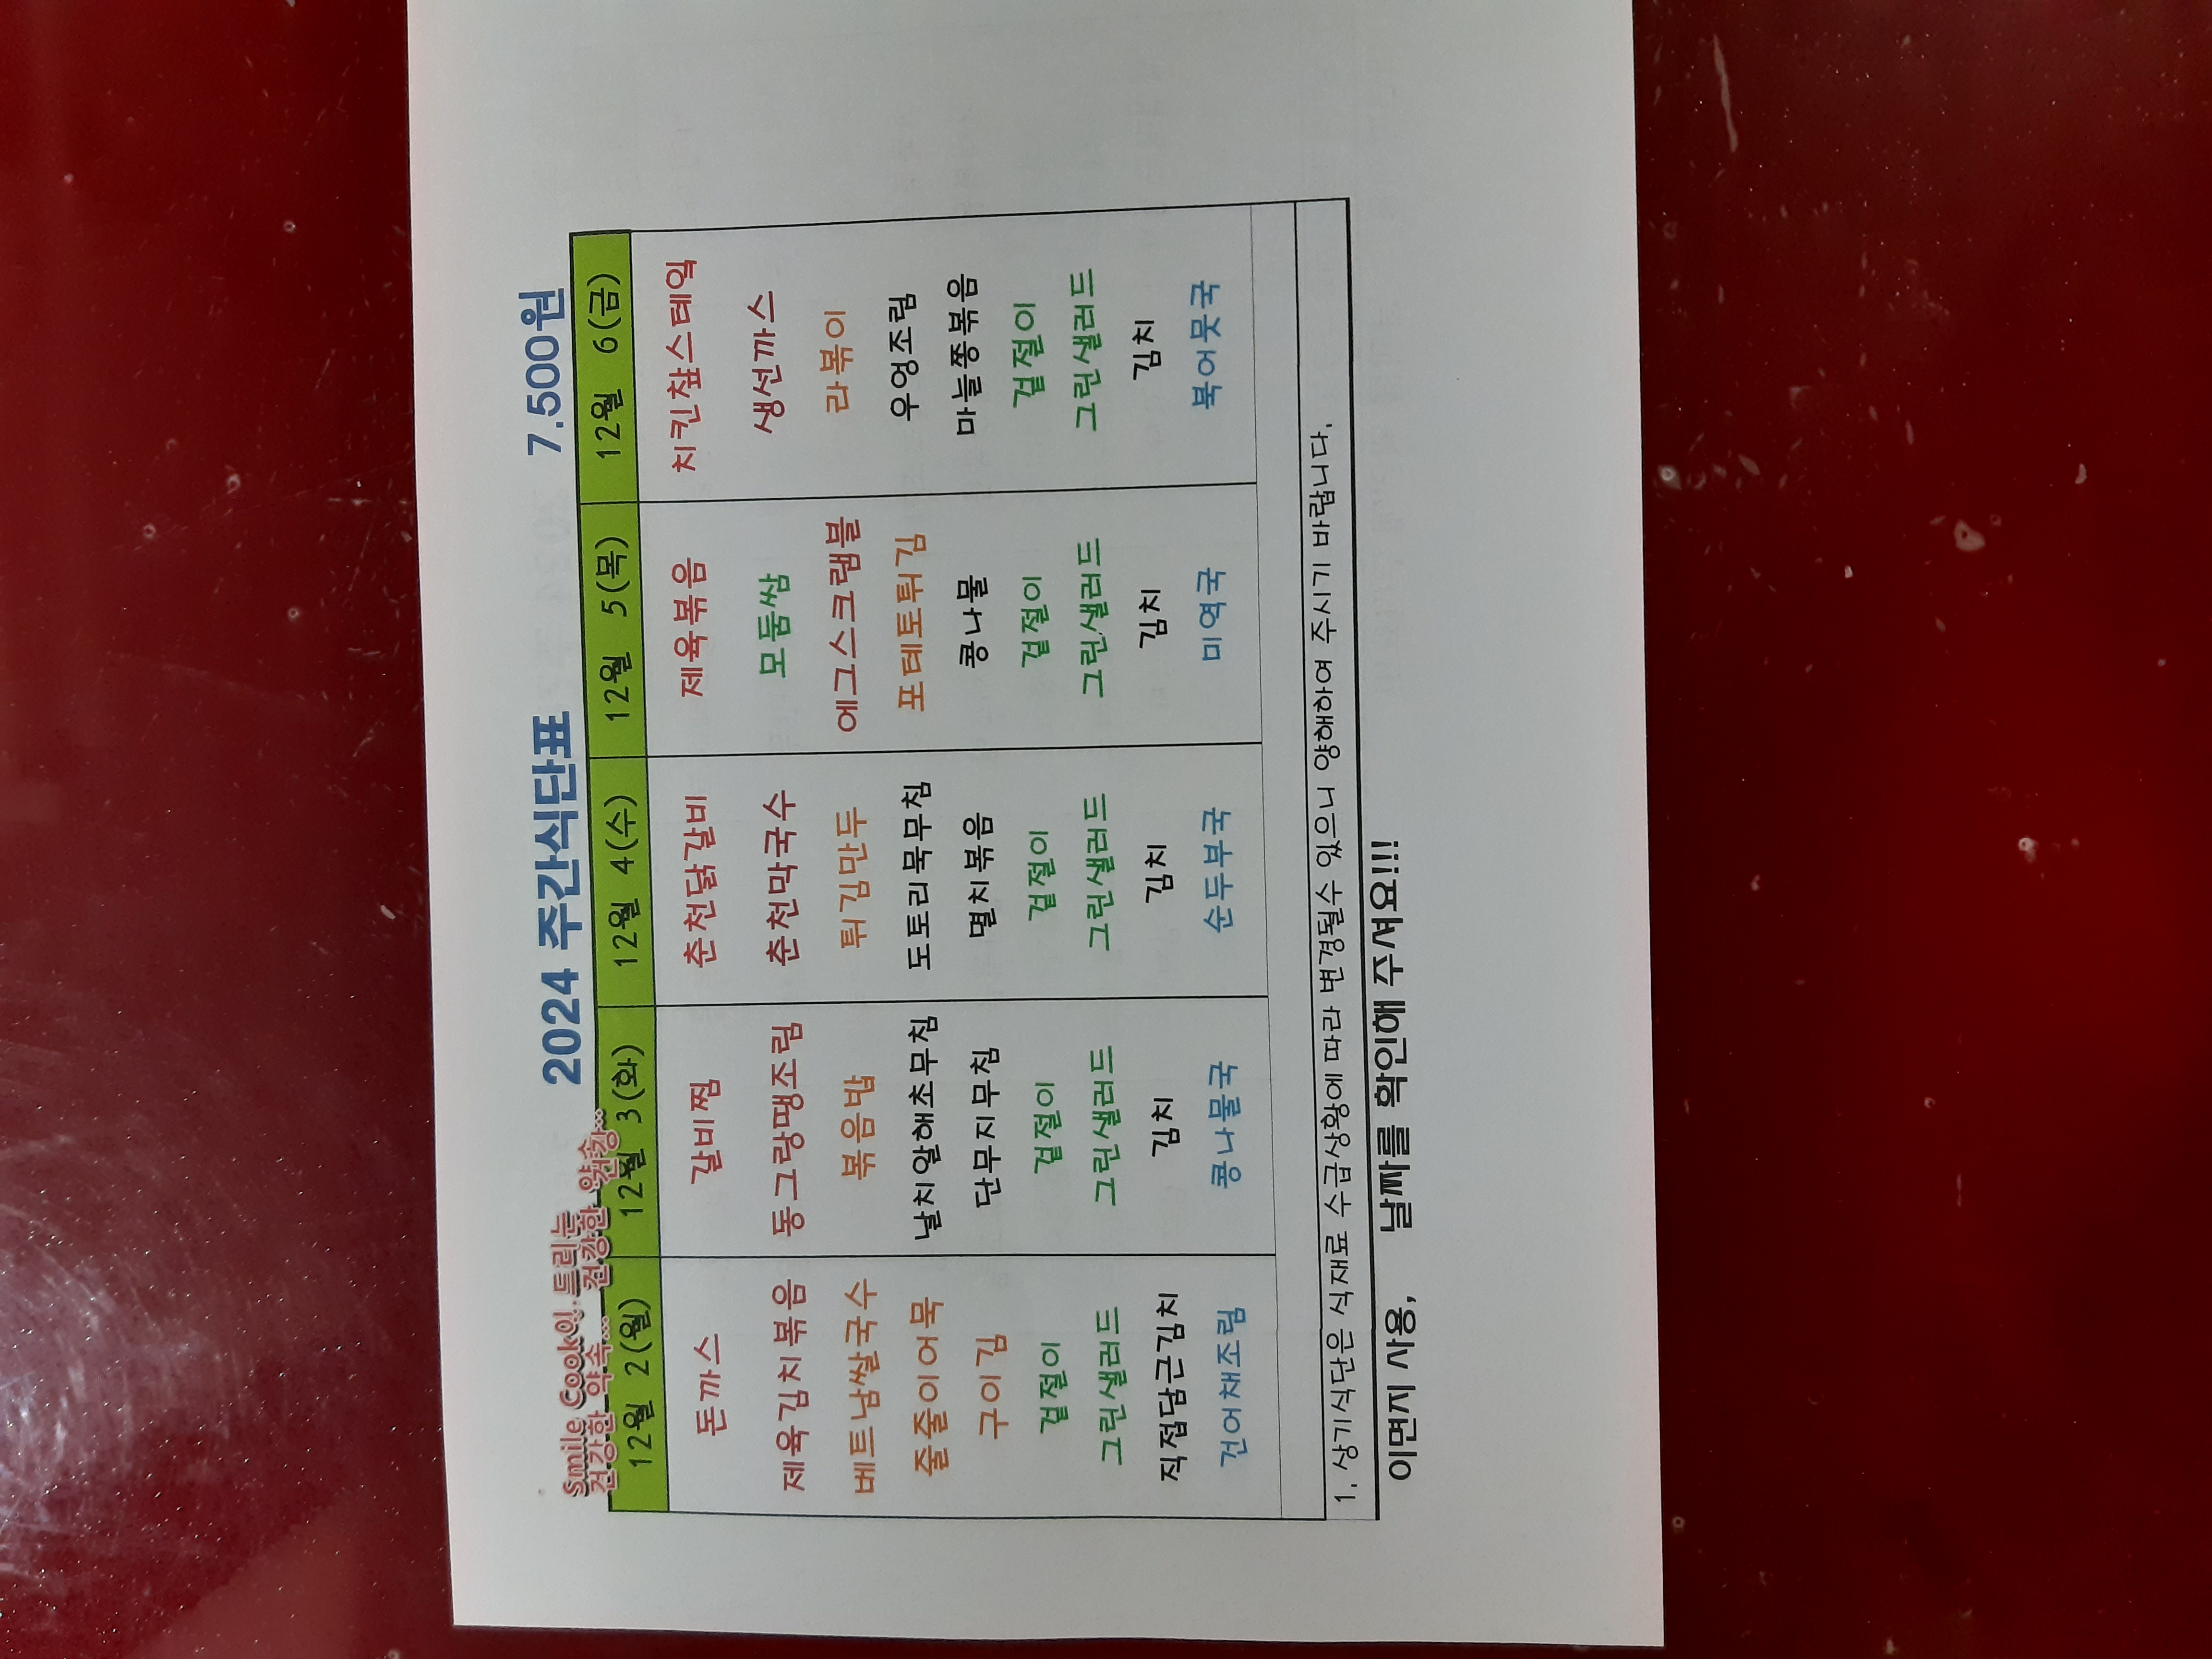 2024 주간식단표 7.500원
Smile Cook이 드리는
건강한 약속... 건강한 웃음...
12월 2(월) 12월 3(화) 12월 4(수) 12월 5(목) 12월 6(금)
돈까스 갈비찜 춘천닭갈비 제육볶음 치킨찹스테잌
제육김치볶음 동그랑땡조림 춘천막국수 모둠쌈 생선까스
베트남쌀국수 볶음밥 튀김만두 에그스크램블 라볶이
줄줄이어묵 날치알해초무침 도토리묵무침 포테토튀김 우엉조림
구이김 단무지무침 멸치볶음 콩나물 마늘쫑볶음
겉절이 겉절이 겉절이 겉절이 겉절이
그린샐러드 그린샐러드 그린샐러드 그린샐러드 그린샐러드
직접담근김치 김치 김치 김치 김치
건어채조림 콩나물국 순두부국 미역국 북어뭇국
1. 상기식단은 식재료 수급상황에 따라 변경될수 있으니 양해하여 주시기 바랍니다.
이면지 사용, 날짜를 확인해 주세요!!!